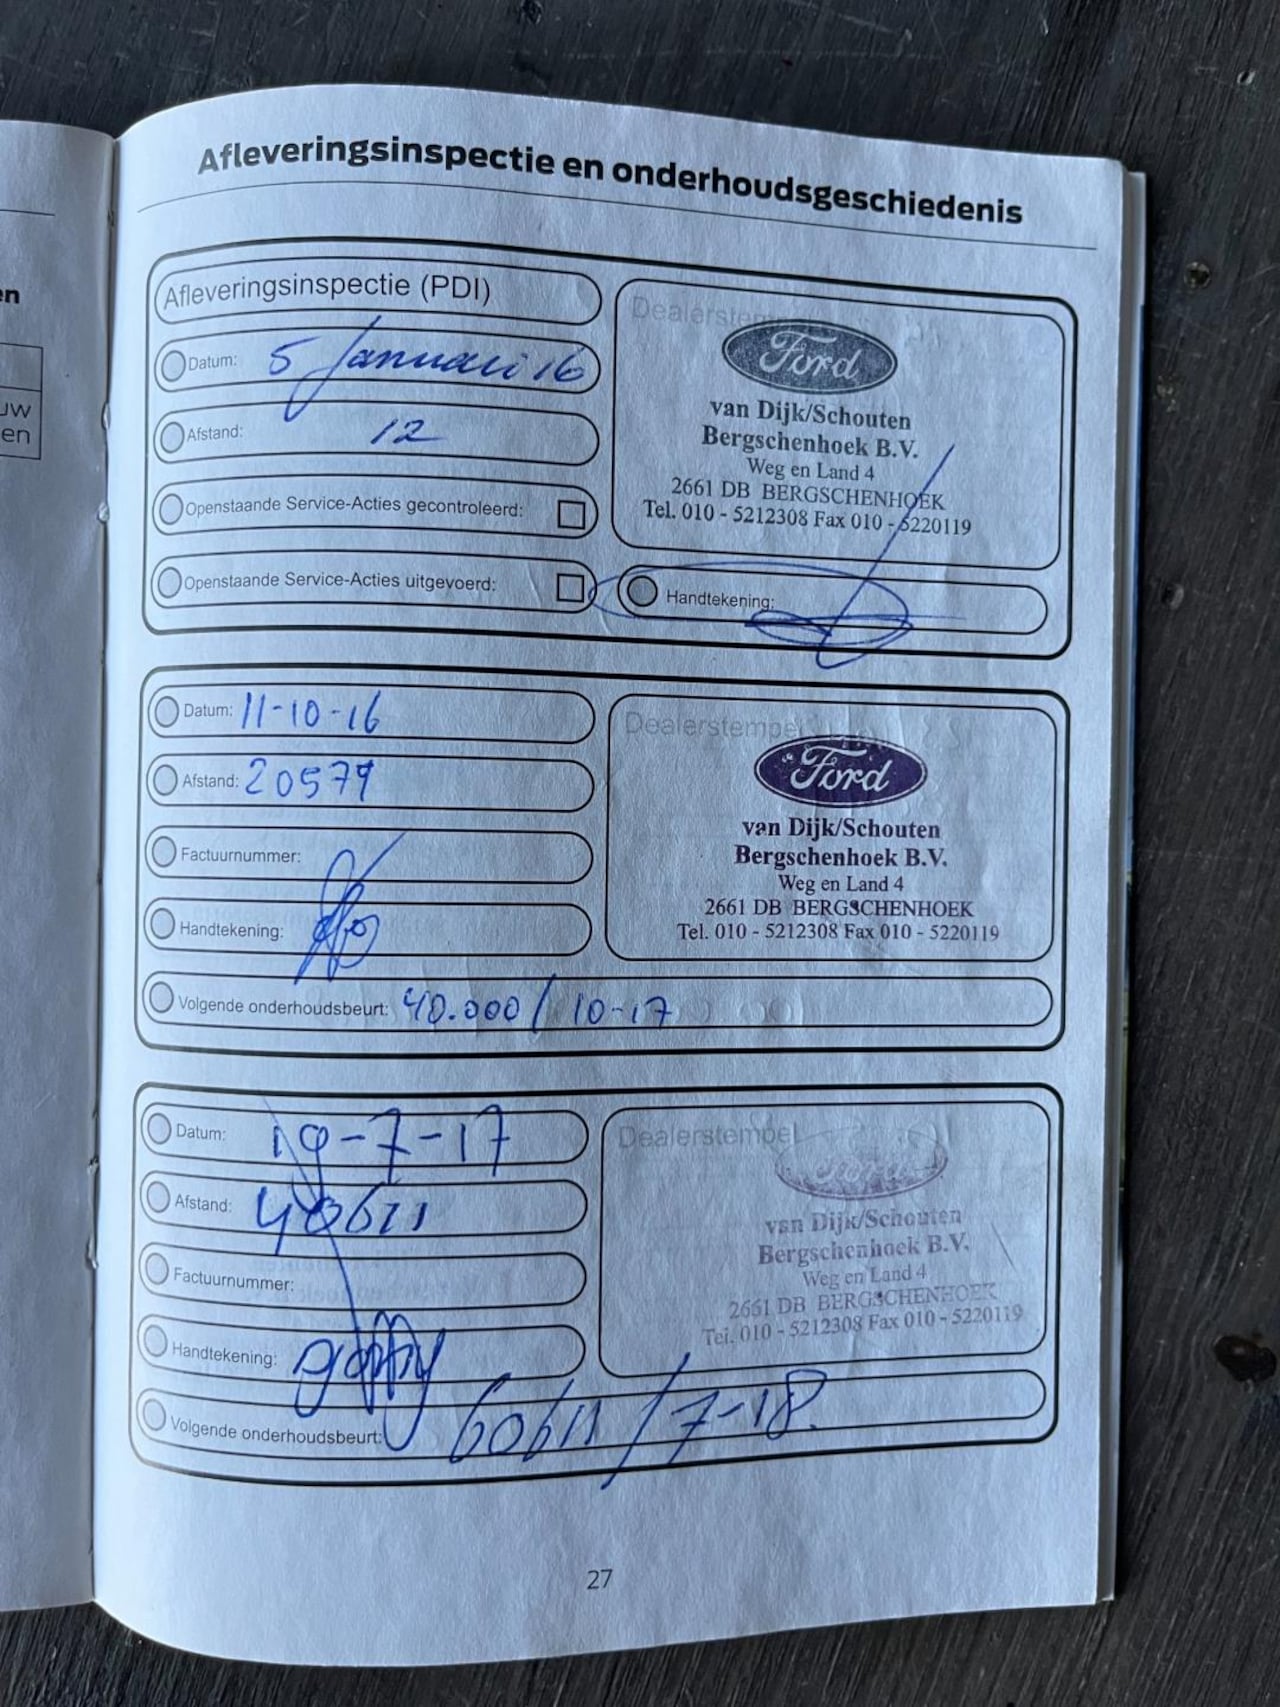 en
uw
en
Afleveringsinspectie en onderhoudsgeschiedenis
Afleveringsinspectie (PDI)
Datum: 5 Januari 16
Afstand: 12
Openstaande Service-Acties gecontroleerd:
Openstaande Service-Acties uitgevoerd:
Dealerstempel
Ford
van Dijk/Schouten
Bergschenhoek B.V.
Weg en Land 4
2661 DB BERGSCHENHOEK
Tel. 010 - 5212308 Fax 010 - 5220119
Handtekening:
Datum: 11-10-16
Afstand: 20579
Factuurnummer:
Handtekening:
Dealerstempel
Ford
van Dijk/Schouten
Bergschenhoek B.V.
Weg en Land 4
2661 DB BERGSCHENHOEK
Tel. 010 - 5212308 Fax 010 - 5220119
Volgende onderhoudsbeurt: 40.000 / 10-17
Datum: 19-7-17
Afstand: 40611
Factuurnummer:
Handtekening:
Dealerstempel
Ford
van Dijk/Schouten
Bergschenhoek B.V.
Weg en Land 4
2661 DB BERGSCHENHOEK
Tel. 010 - 5212308 Fax 010 - 5220119
Volgende onderhoudsbeurt: 60611 / 7-18.
27